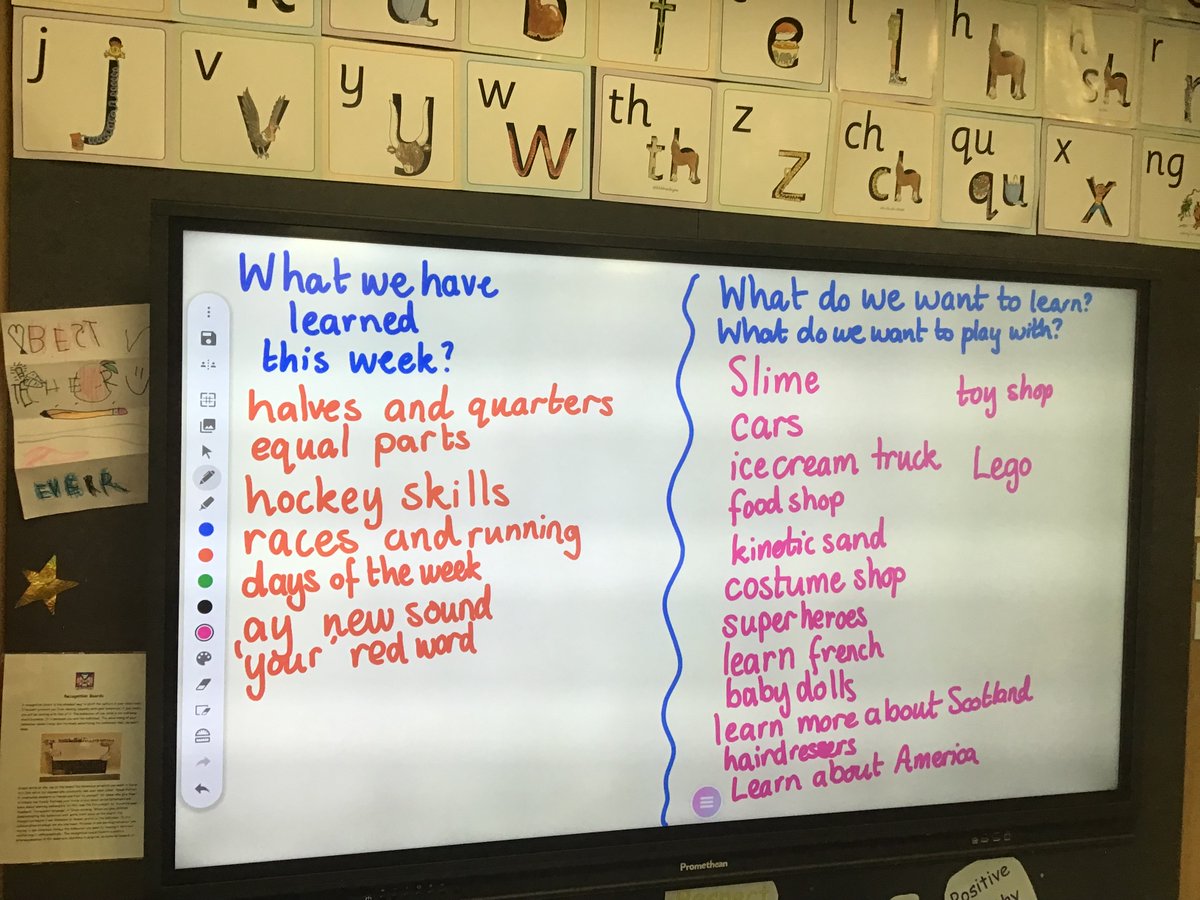 j
v
y
w
th
th
z
ch
ch
qu
qu
x
ng
h
sh
r
BEST
EVERR
What we have
learned
this week?
halves and quarters
equal parts
hockey skills
races and running
days of the week
'ay new sound
'your' red word
What do we want to learn?
What do we want to play with?
Slime
cars
ice cream truck
food shop
kinetic sand
costume shop
superheroes
learn french
baby dolls
learn more about Scotland
hairdressers
Learn about America
toy shop
Lego
Recognition Boards
Promethean
Positive